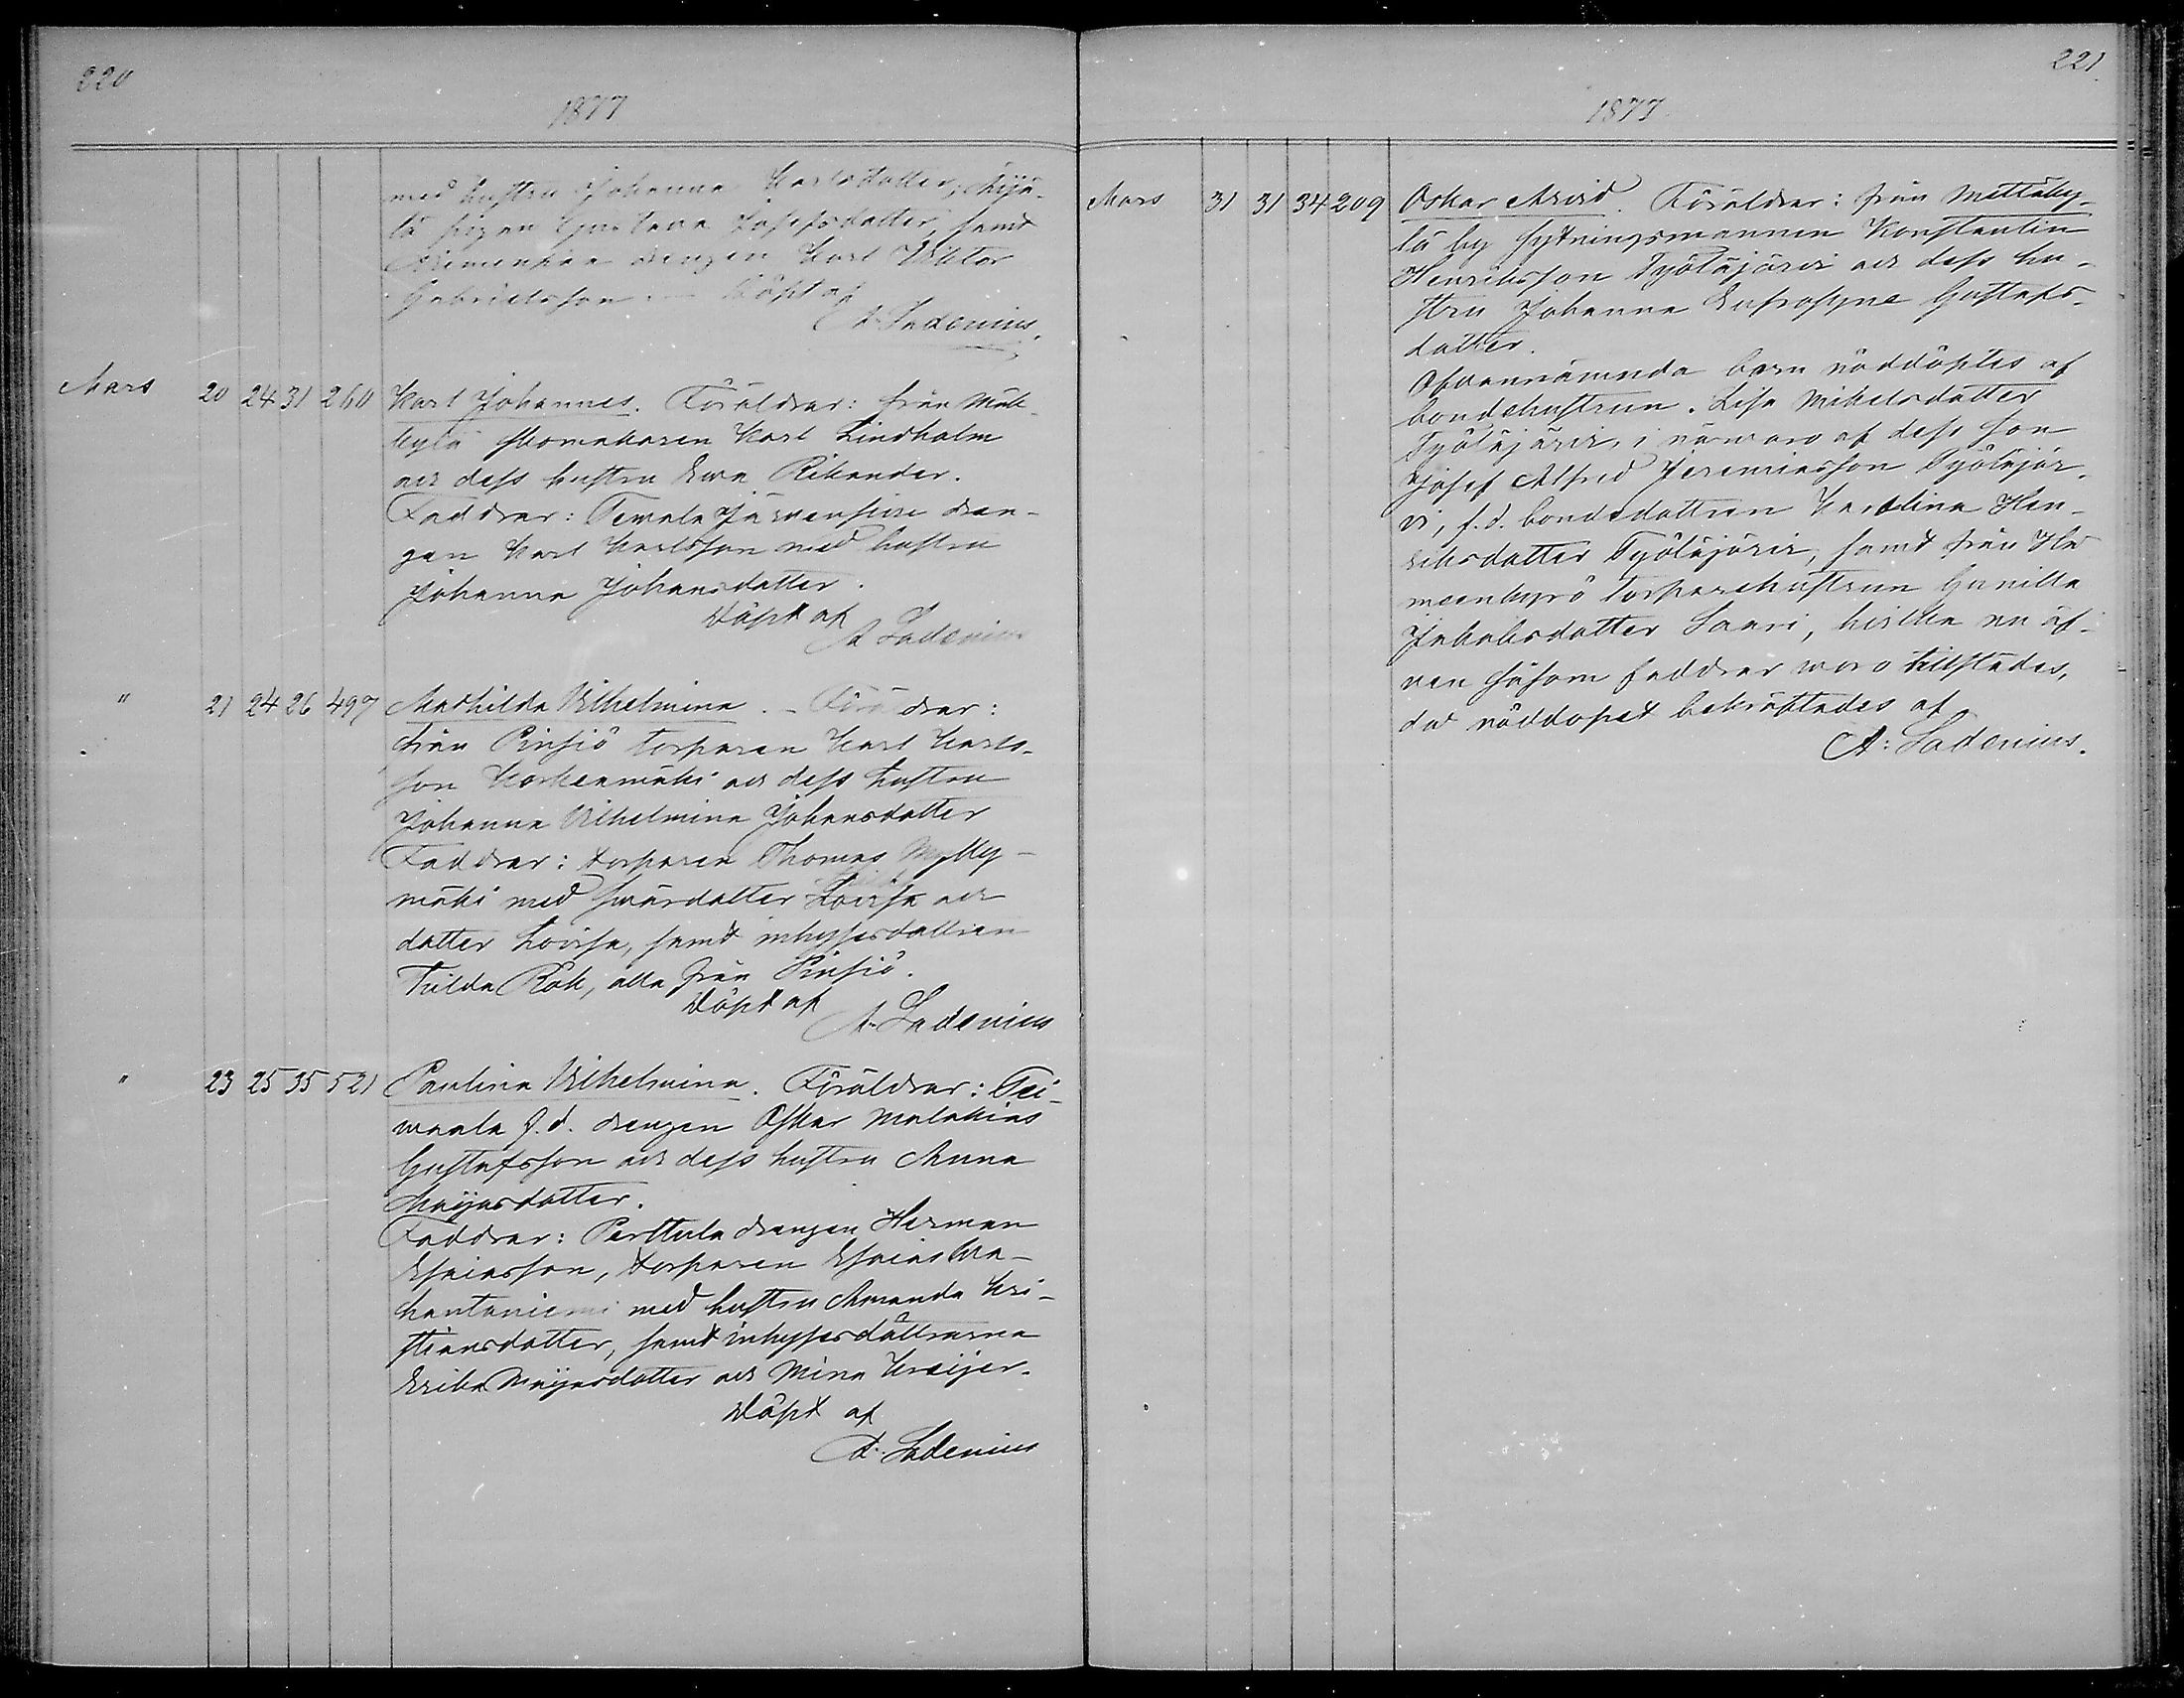 220
1877
med hustru Johanna Karlsdotter, Kyjä-
lä pigan Gustava Josefsdotter, samt
Niemenpää drengen Karl Viktor
Gabrielsson. — Döpt af
A. Ladenius
Mars 20 24 31 260 Karl Johannes. Föräldrar: från Mäk-
kylä skomakaren Karl Lindholm
och dess hustru Ewa Rikander.
Faddrar: Temala Järvensivu dren-
gen Karl Karlsson med hustru
Johanna Johansdotter.
Döpt af
A Ladenius
" 21 24 26 497 Mathilda Wilhelmina. – Föräldrar:
från Pinsiö torparen Karl Karls-
son Korkenmäki och dess hustru
Johanna Wilhelmina Johansdotter
Faddrar: torparen Thomas Mylly-
mäki med swärdotter Lovisa och
dotter Lovisa, samt inhysesdottren
Tilda Rok, alla från Pinsiö.
Döpt af
A. Ladenius
" 23 25 35 521 Paulina Wilhelmina. Föräldrar: Tei-
waala f.d. drengen Oskar Malakias
Gustafsson och dess hustru Anna
Maijasdotter.
Faddrar: Perttula drengen Herman
Esaiasson, torparen Esaias
hantaniemi med hustru Amanda Kri-
stiansdotter, samt inhysesdöttrarna
Erika Maijasdotter och Mina Kreijer.
Döpt af
A. Ladenius
221.
1877
Mars 31 31 34 209 Oskar Arvid. Föräldrar: från Mettäky-
lä by sytningsmannen Konstantin
Henriksson Työläjärvi och dess hu-
stru Johanna Eufrosyne Gustafs-
dotter.
Ofvannämnda barn nöddöptes af
bondehustrun Lisa Mikelsdotter
Työläjärvi, i närwaro af dess son
Josef Alfred Jeremiasson Työläjär-
vi, f.d. bondedottren Karolina Hen-
riksdotter Työläjärvi, samt från Ha
meenkyrö torparehustrun Gunilla
Jakobsdotter Saari, hvilka nu äf-
ven såsom faddrar woro tillstädes,
då nöddopet bekräftades af
A: Ladenius.